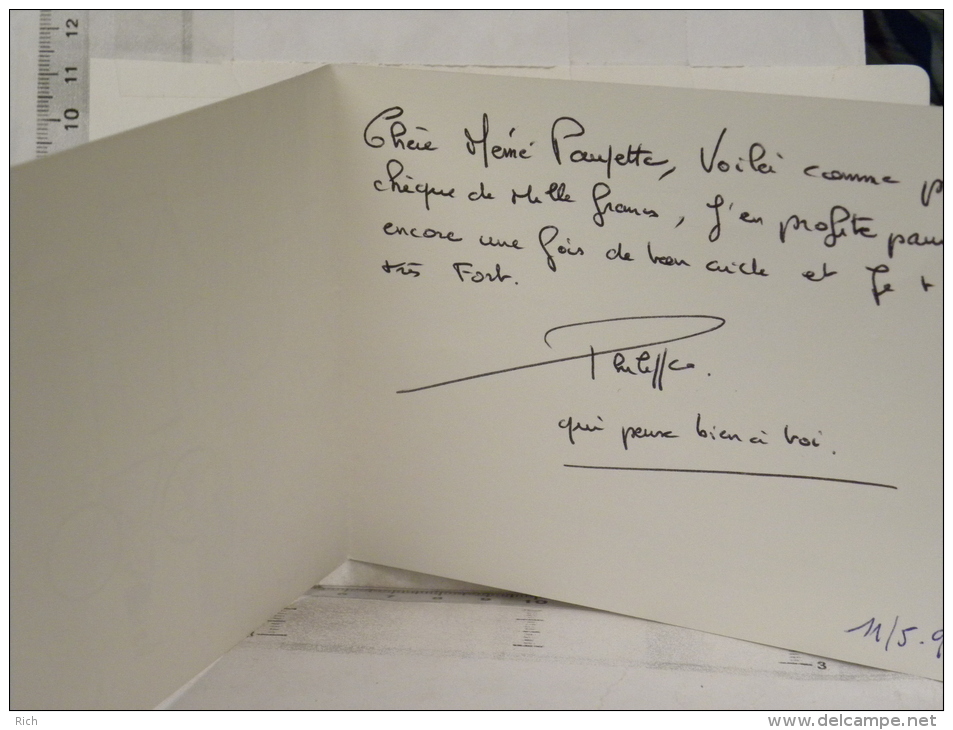 12
11
10
Chère Mémé Paupette, Voilà comme p
chèque de Mille francs, J'en profite pour
encore une fois de ton aide et Je t
très Fort.
Philippe.
qui pense bien à toi.
11/5.9
10
3
Rich
www.delcampe.net